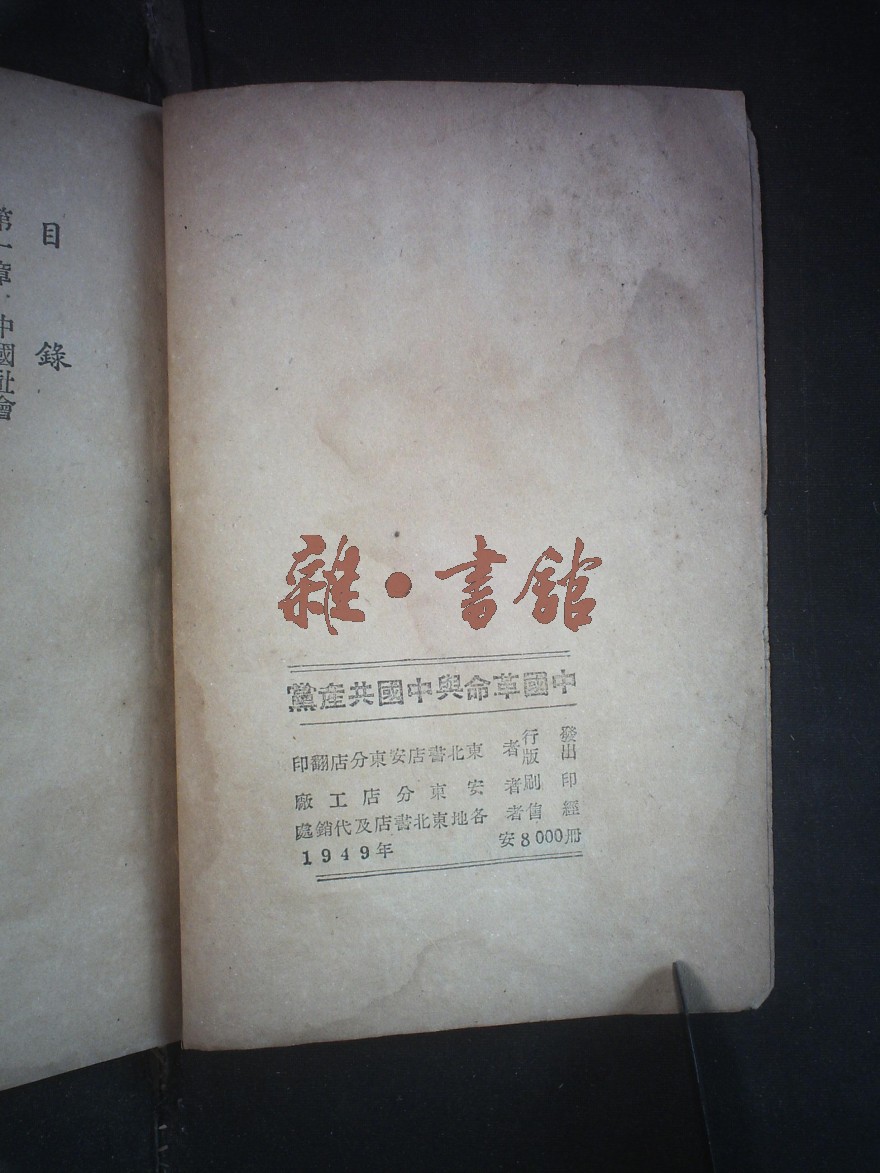 目錄
第一章·中國社會
雜·書舘
中國革命與中國共產黨
發行
出版者 東北書店安東分店翻印
印刷者 安東分店工廠
經售者 各地東北書店及代銷處
1949年 安8000冊